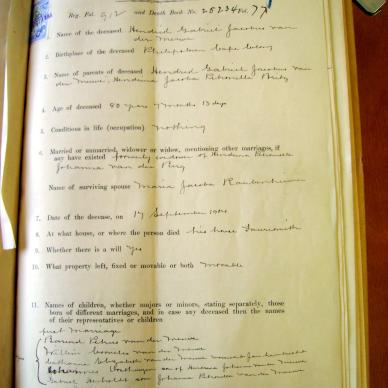 Reg. Fol. 912 and Death Book No. 25234 Fol. 77
1. Name of the deceased Hendrik Gabriel Jacobus van
der Merwe
2. Birthplace of the deceased Philippolis Cape Colony
3. Name of parents of deceased Hendrik Gabriel Jacobus van
der Merwe, Hendrina Jacoba Petronella
4. Age of deceased 80 years 7 months 13 days
5. Conditions in life (occupation) nothing
6. Married or unmarried, widower or widow, mentioning other marriages, if
any have existed formerly widower of Hendrina
Johanna van den Berg
Name of surviving spouse Maria Jacoba Raubenheimer
7. Date of the decease, on 17 September 1904
8. At what house, or where the person died his house
9. Whether there is a will yes
10. What property left, fixed or movable or both movable
11. Names of children, whether majors or minors, stating separately, those
born of different marriages, and in case any deceased then the names
of their representatives or children
first Marriage
Barend Petrus van der Merwe
Willem Cornelis van der Merwe
Elizabeth van der Merwe
Johannes son of
Gabriel son Johanna Petronella van der Merwe